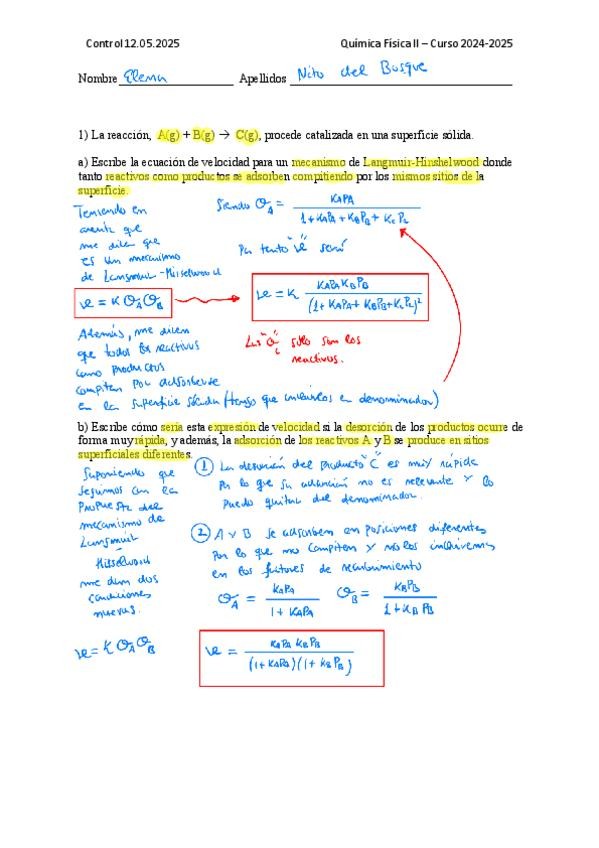 Control 12.05.2025 Química Física II – Curso 2024-2025
Nombre Elena Apellidos Nito del Bosque
1) La reacción, A(g) + B(g) → C(g), procede catalizada en una superficie sólida.
a) Escribe la ecuación de velocidad para un mecanismo de Langmuir-Hinshelwood donde
tanto reactivos como productos se adsorben compitiendo por los mismos sitios de la
superficie.
Teniendo en
cuenta que
me dicen que
es un mecanismo
de Langmuir-Hisselwood
Siendo θA = KAPA / (1+KAPA+KBPB+KcPc)
Por tanto "v" será
v = K θA θB
v = K KAPA KBPB / (1+KAPA+KBPB+KcPc)²
Las "θ" sólo son los
reactivos.
Además, me dicen
que todos los reactivos
como productos
compiten por adsorberse
en la superficie sólida (tengo que incluirlos en denominador)
b) Escribe cómo sería esta expresión de velocidad si la desorción de los productos ocurre de
forma muy rápida, y además, la adsorción de los reactivos A y B se produce en sitios
superficiales diferentes.
Suponiendo que
seguimos con la
propuesta del
mecanismo de
Langmuir
Hisselwood
me dan dos
condiciones
nuevas.
① La desorción del producto "C" es muy rápida
Por lo que su adsorción no es relevante y lo
puedo quitar del denominador.
② A y B se adsorben en posiciones diferentes
Por lo que no compiten y no los incluiremos
en los factores de recubrimiento
θA = KAPA / (1+KAPA) θB = KBPB / (1+KBPB)
v = K θA θB
v = KAPA KBPB / (1+KAPA)(1+KBPB)